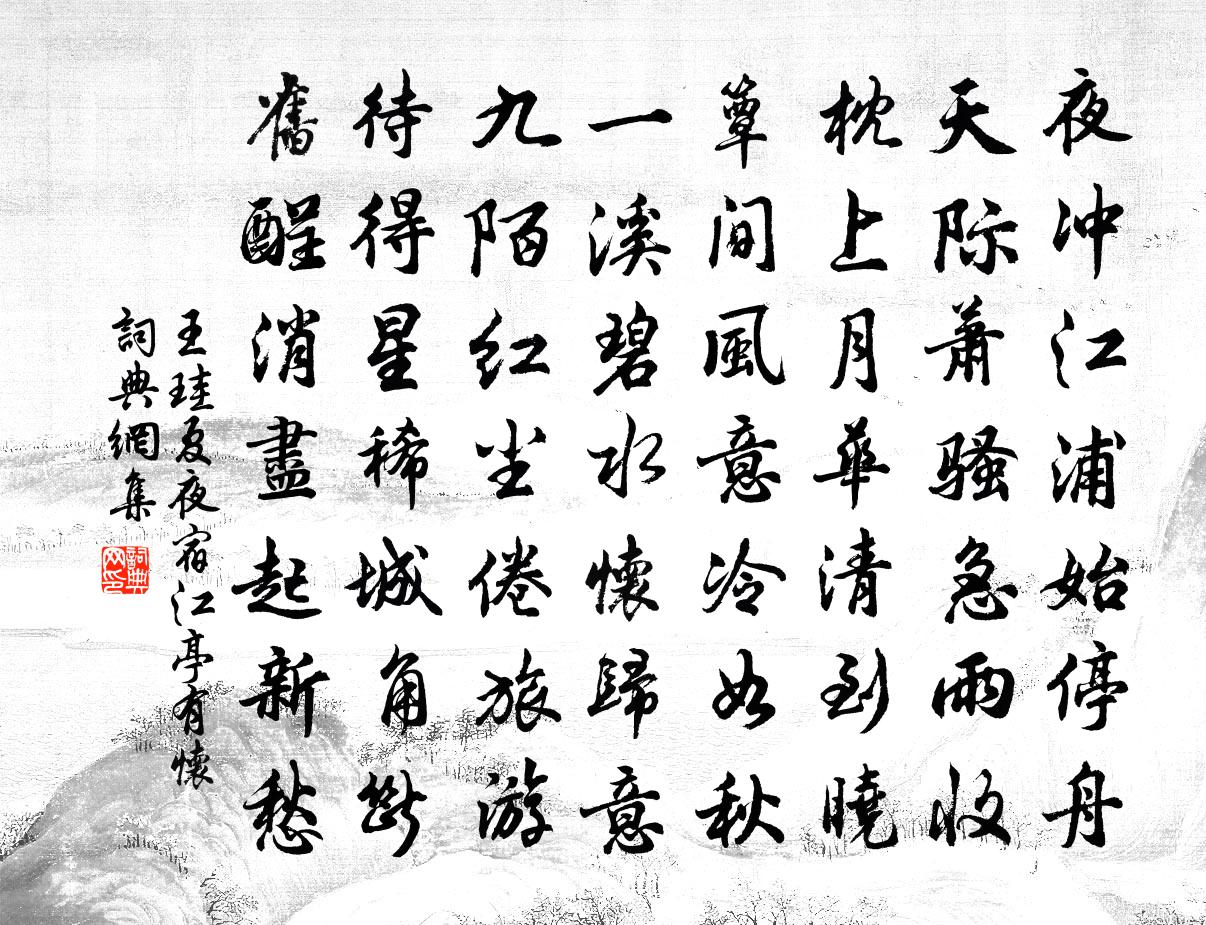 夜冲江浦始停舟
天际萧骚急雨收
枕上月華清到曉
簟间風意冷如秋
一溪碧水懷歸意
九陌红尘倦旅游
待得星稀城角斷
舊酲消盡起新愁
王珪夏夜宿江亭有懷
詞典網集
詞典网印